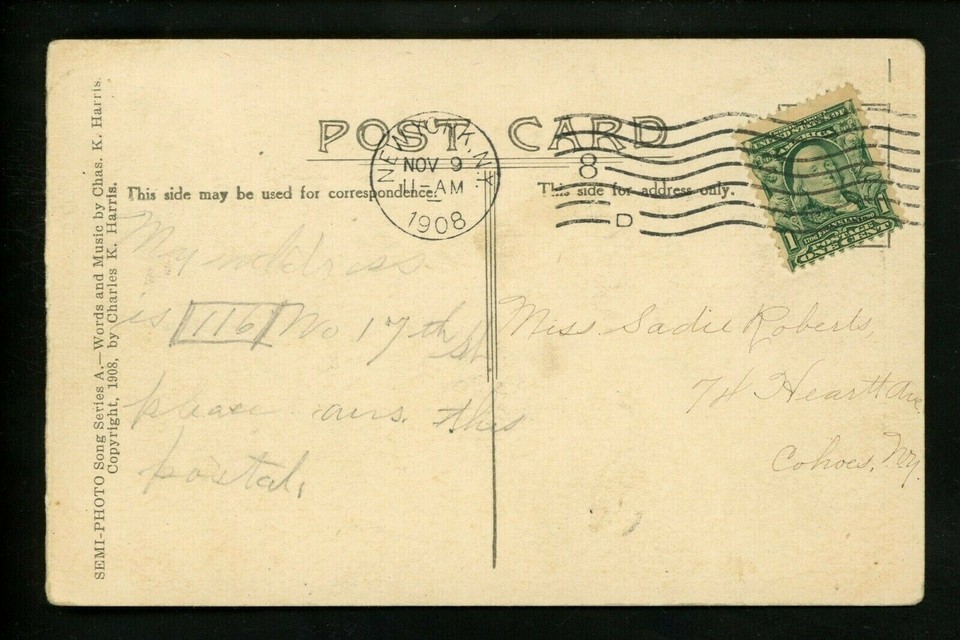 SEMI-PHOTO Song Series A.—Words and Music by Chas. K. Harris.
Copyright, 1908, by Charles K. Harris.
POST CARD
NEW YORK, N.Y.
NOV 9
11-AM
1908
8
D
This side may be used for correspondence.
This side for address only.
My address
is 116 No 17th St
please ans. this
postal.
Miss Sadie Roberts,
74 Heartt Ave.
Cohoes, N.Y.
UNITED STATES OF
AMERICA
1 POSTAGE 1
ONE CENT